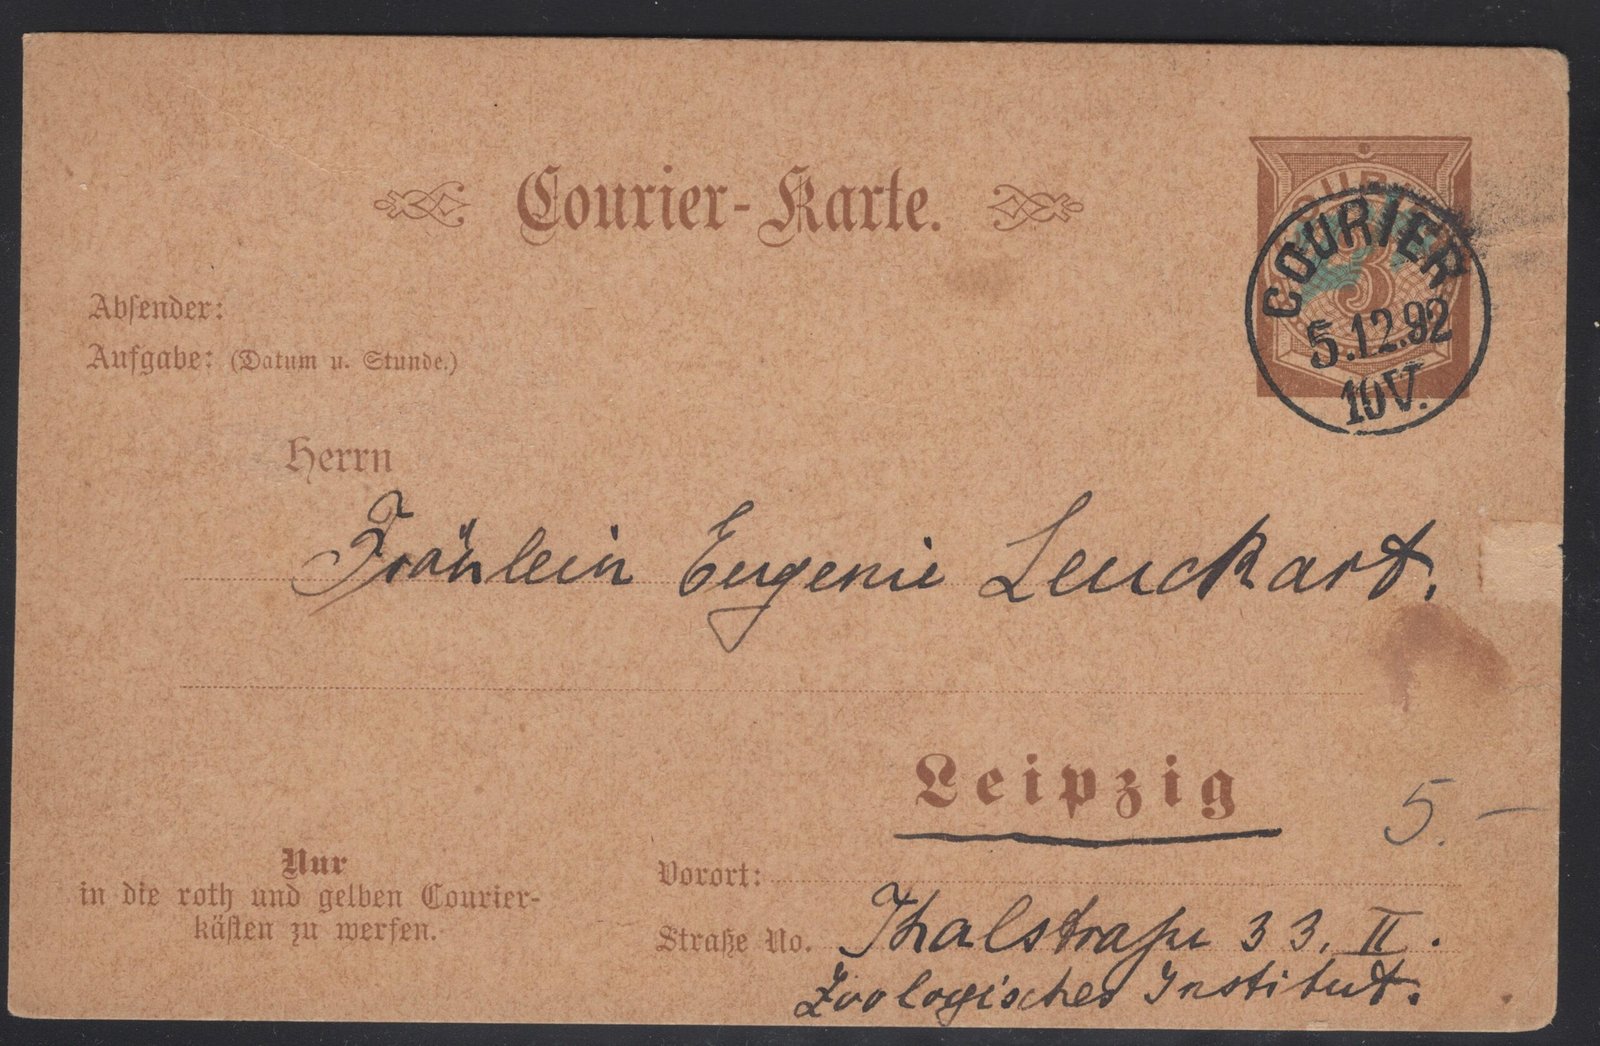 Courier-Karte.
COURIER
3
5.12.92
10V.
Absender:
Aufgabe: (Datum u. Stunde.)
Herrn
Fräulein Eugenie Leuckart.
Leipzig
5.-
Nur
in die roth und gelben Courier-
kästen zu werfen.
Vorort:
Straße No. Thalstraße 33. II.
Zoologisches Institut.